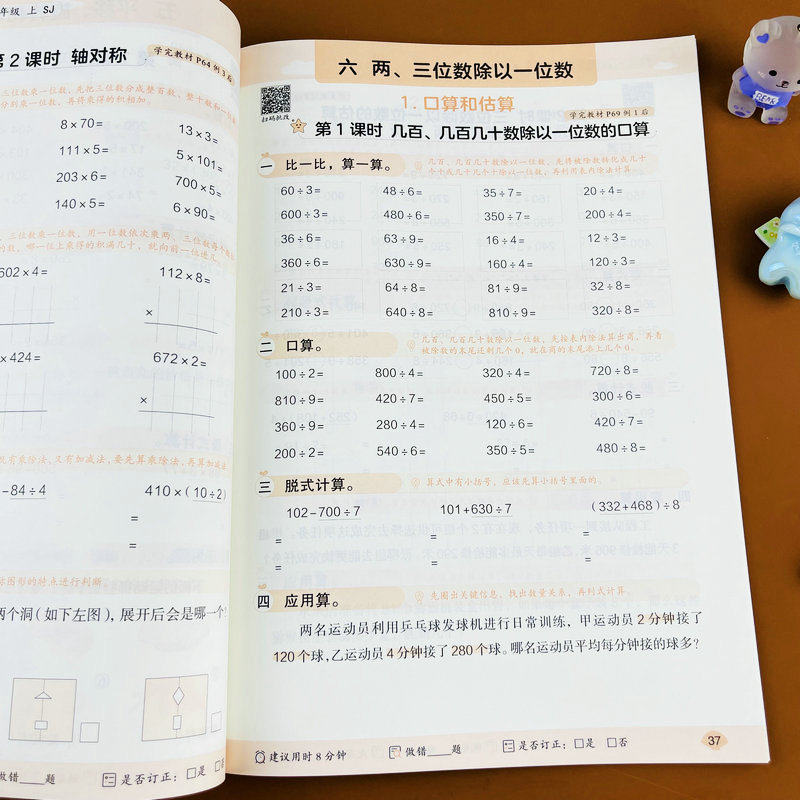 年级 上 SJ
第2课时 轴对称
学完教材 P64 例 3 后
8×70=
13×3=
111×5=
5×101=
203×6=
700×5=
140×5=
6×90=
602×4=
112×8=
×
×424=
672×2=
×
既有乘除法，又有加减法，要先算乘除法，再算加减法
-84÷4
410×(10÷2)
=
=
图形的特点进行判断。
两个洞(如下左图)，展开后会是哪一个?
做错____题
是否订正：□是 □否
六 两、三位数除以一位数
扫码批改
1.口算和估算
学完教材 P69 例 1 后
第1课时 几百、几百几十数除以一位数的口算
一 比一比，算一算。
几百、几百几十数除以一位数，先将被除数转化成几十
个十或几十几个十除以一位数，再利用表内除法计算。
60÷3= 48÷6= 35÷7= 20÷4=
600÷3= 480÷6= 350÷7= 200÷4=
36÷6= 63÷9= 16÷4= 12÷3=
360÷6= 630÷9= 160÷4= 120÷3=
21÷3= 64÷8= 81÷9= 32÷8=
210÷3= 640÷8= 810÷9= 320÷8=
二 口算。
几百、几百几十数除以一位数，先按表内除法算出商，再看
被除数的末尾还剩几个0，就在商的末尾添上几个0。
100÷2= 800÷4= 320÷4= 720÷8=
810÷9= 420÷7= 450÷5= 300÷6=
360÷9= 280÷4= 120÷6= 420÷7=
200÷2= 540÷6= 350÷5= 480÷8=
三 脱式计算。
算式中有小括号，应该先算小括号里面的。
102-700÷7 101+630÷7 (332+468)÷8
= = =
= = =
四 应用算。
先圈出关键信息，找出数量关系，再列式计算。
两名运动员利用乒乓球发球机进行日常训练，甲运动员2分钟接了
120个球，乙运动员4分钟接了280个球。哪名运动员平均每分钟接的球多?
建议用时8分钟
做错____题
是否订正：□是 □否
37